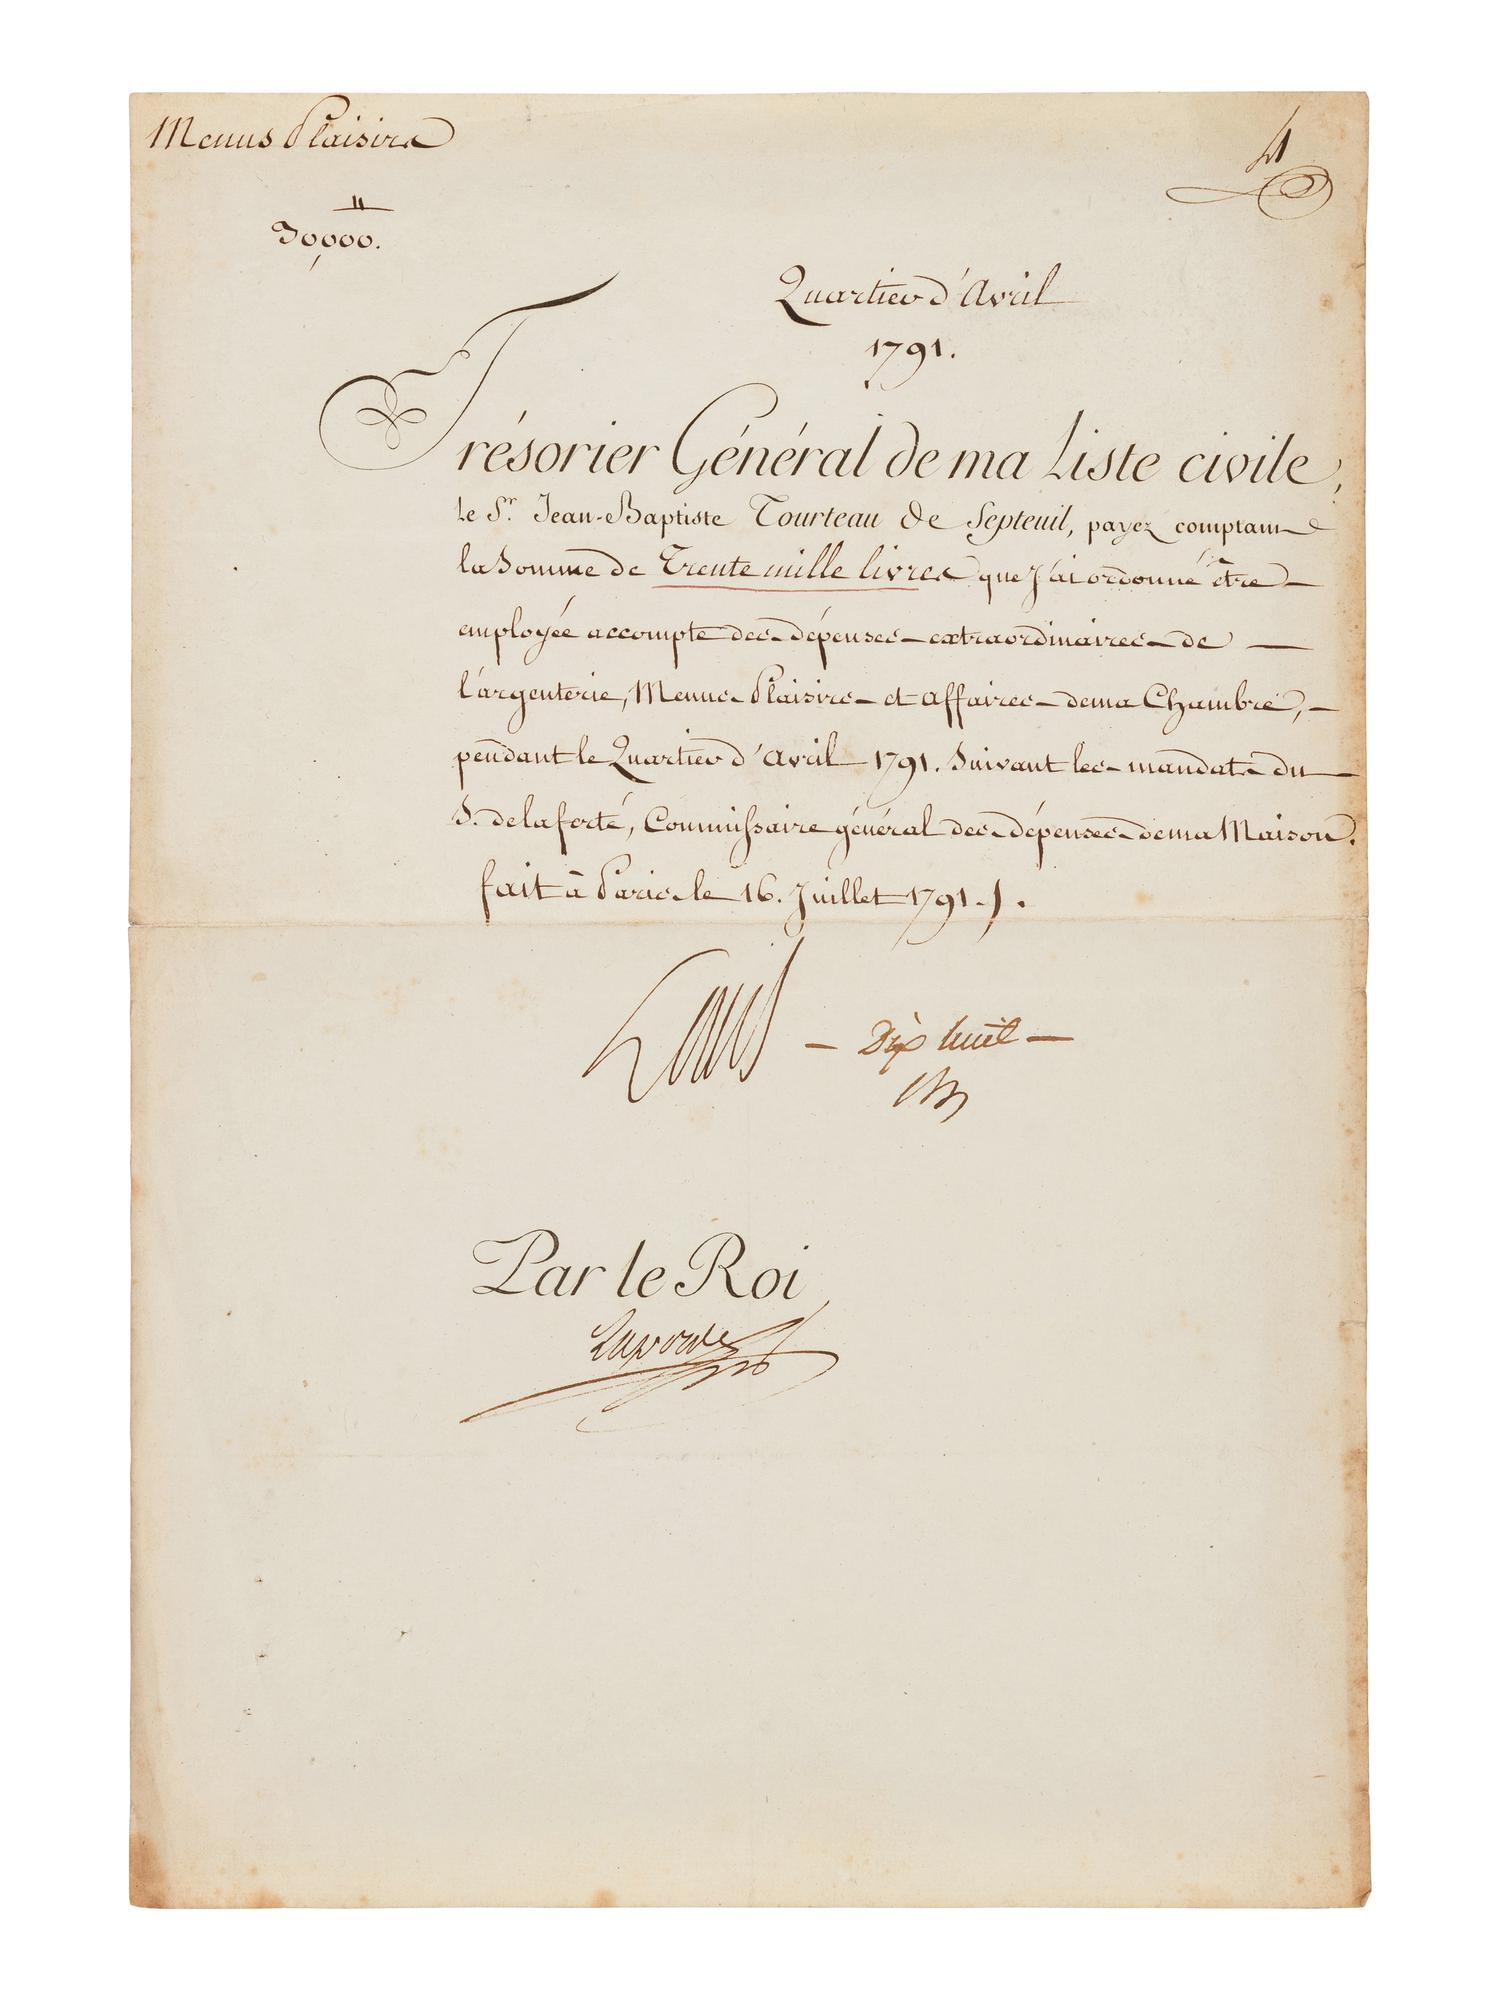 Menus Plaisirs
4
₶
30,000.
Quartier d'Avril
1791.
Trésorier Général de ma Liste civile,
le Sr. Jean-Baptiste Tourteau de Septeuil, payez comptant
la Somme de Trente mille livres que J'ai ordonné être
employée accompte des dépenses extraordinaires de
l'argenterie, Menus Plaisirs et affaires de ma Chambre,
pendant le Quartier d'Avril 1791. Suivant les mandats du
S. de la ferté, Commissaire général des dépenses de ma Maison.
fait à Paris le 16. Juillet 1791.
Louis — Dix huit —
Par le Roi
Laporte